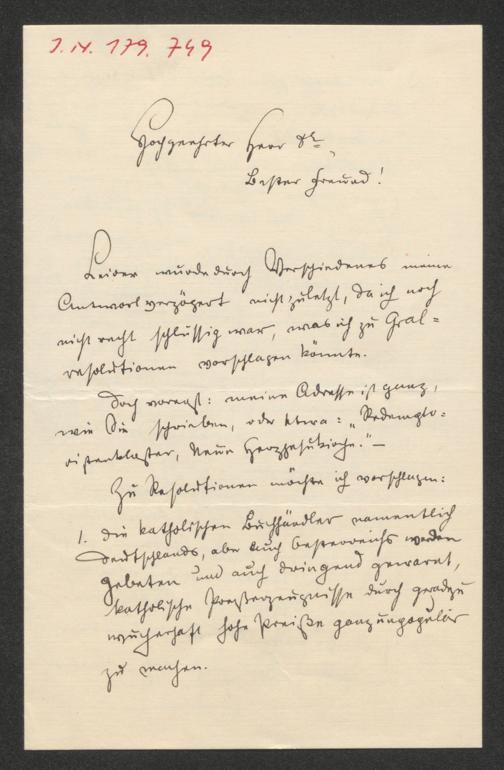 I. N. 179.749
Hochgeehrter Herr Dr.,
Bester Freund!
Leider wurde durch Verschiedenes meine
Antwort verzögert nicht zuletzt, da ich noch
nicht recht schlüssig war, was ich zu Gral=
resolutionen vorschlagen könnte.
Doch vorerst: meine Adresse ist ganz,
wie Sie schrieben, oder etwa: "Redempto-
ristenkloster, Neue Herzjesukirche." —
Zu Resolutionen möchte ich vorschlagen:
1. die katholischen Buchhändler namentlich
Deutschlands, aber auch Oesterreichs werden
gebeten und auch dringend gewarnt,
katholische Preßerzeugnisse durch geradezu
wucherhaft hohe Preiße ganz unpopulär
zu machen.